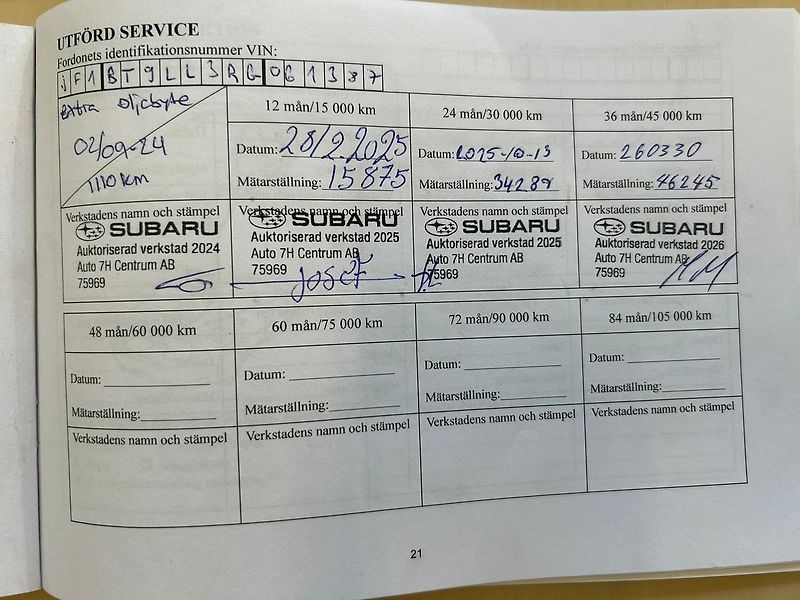 UTFÖRD SERVICE
Fordonets identifikationsnummer VIN:
JF1BT9LL3RG061387
extra oljebyte
02/09-24
1110 km
12 mån/15 000 km
Datum: 28/2.2025
Mätarställning: 15875
24 mån/30 000 km
Datum: 2025-10-13
Mätarställning: 34289
36 mån/45 000 km
Datum: 260330
Mätarställning: 46245
Verkstadens namn och stämpel
SUBARU
Auktoriserad verkstad 2024
Auto 7H Centrum AB
75969
Verkstadens namn och stämpel
SUBARU
Auktoriserad verkstad 2025
Auto 7H Centrum AB
75969
Josef
Verkstadens namn och stämpel
SUBARU
Auktoriserad verkstad 2025
Auto 7H Centrum AB
75969
Verkstadens namn och stämpel
SUBARU
Auktoriserad verkstad 2026
Auto 7H Centrum AB
75969
48 mån/60 000 km
Datum:
Mätarställning:
Verkstadens namn och stämpel
60 mån/75 000 km
Datum:
Mätarställning:
Verkstadens namn och stämpel
72 mån/90 000 km
Datum:
Mätarställning:
Verkstadens namn och stämpel
84 mån/105 000 km
Datum:
Mätarställning:
Verkstadens namn och stämpel
21